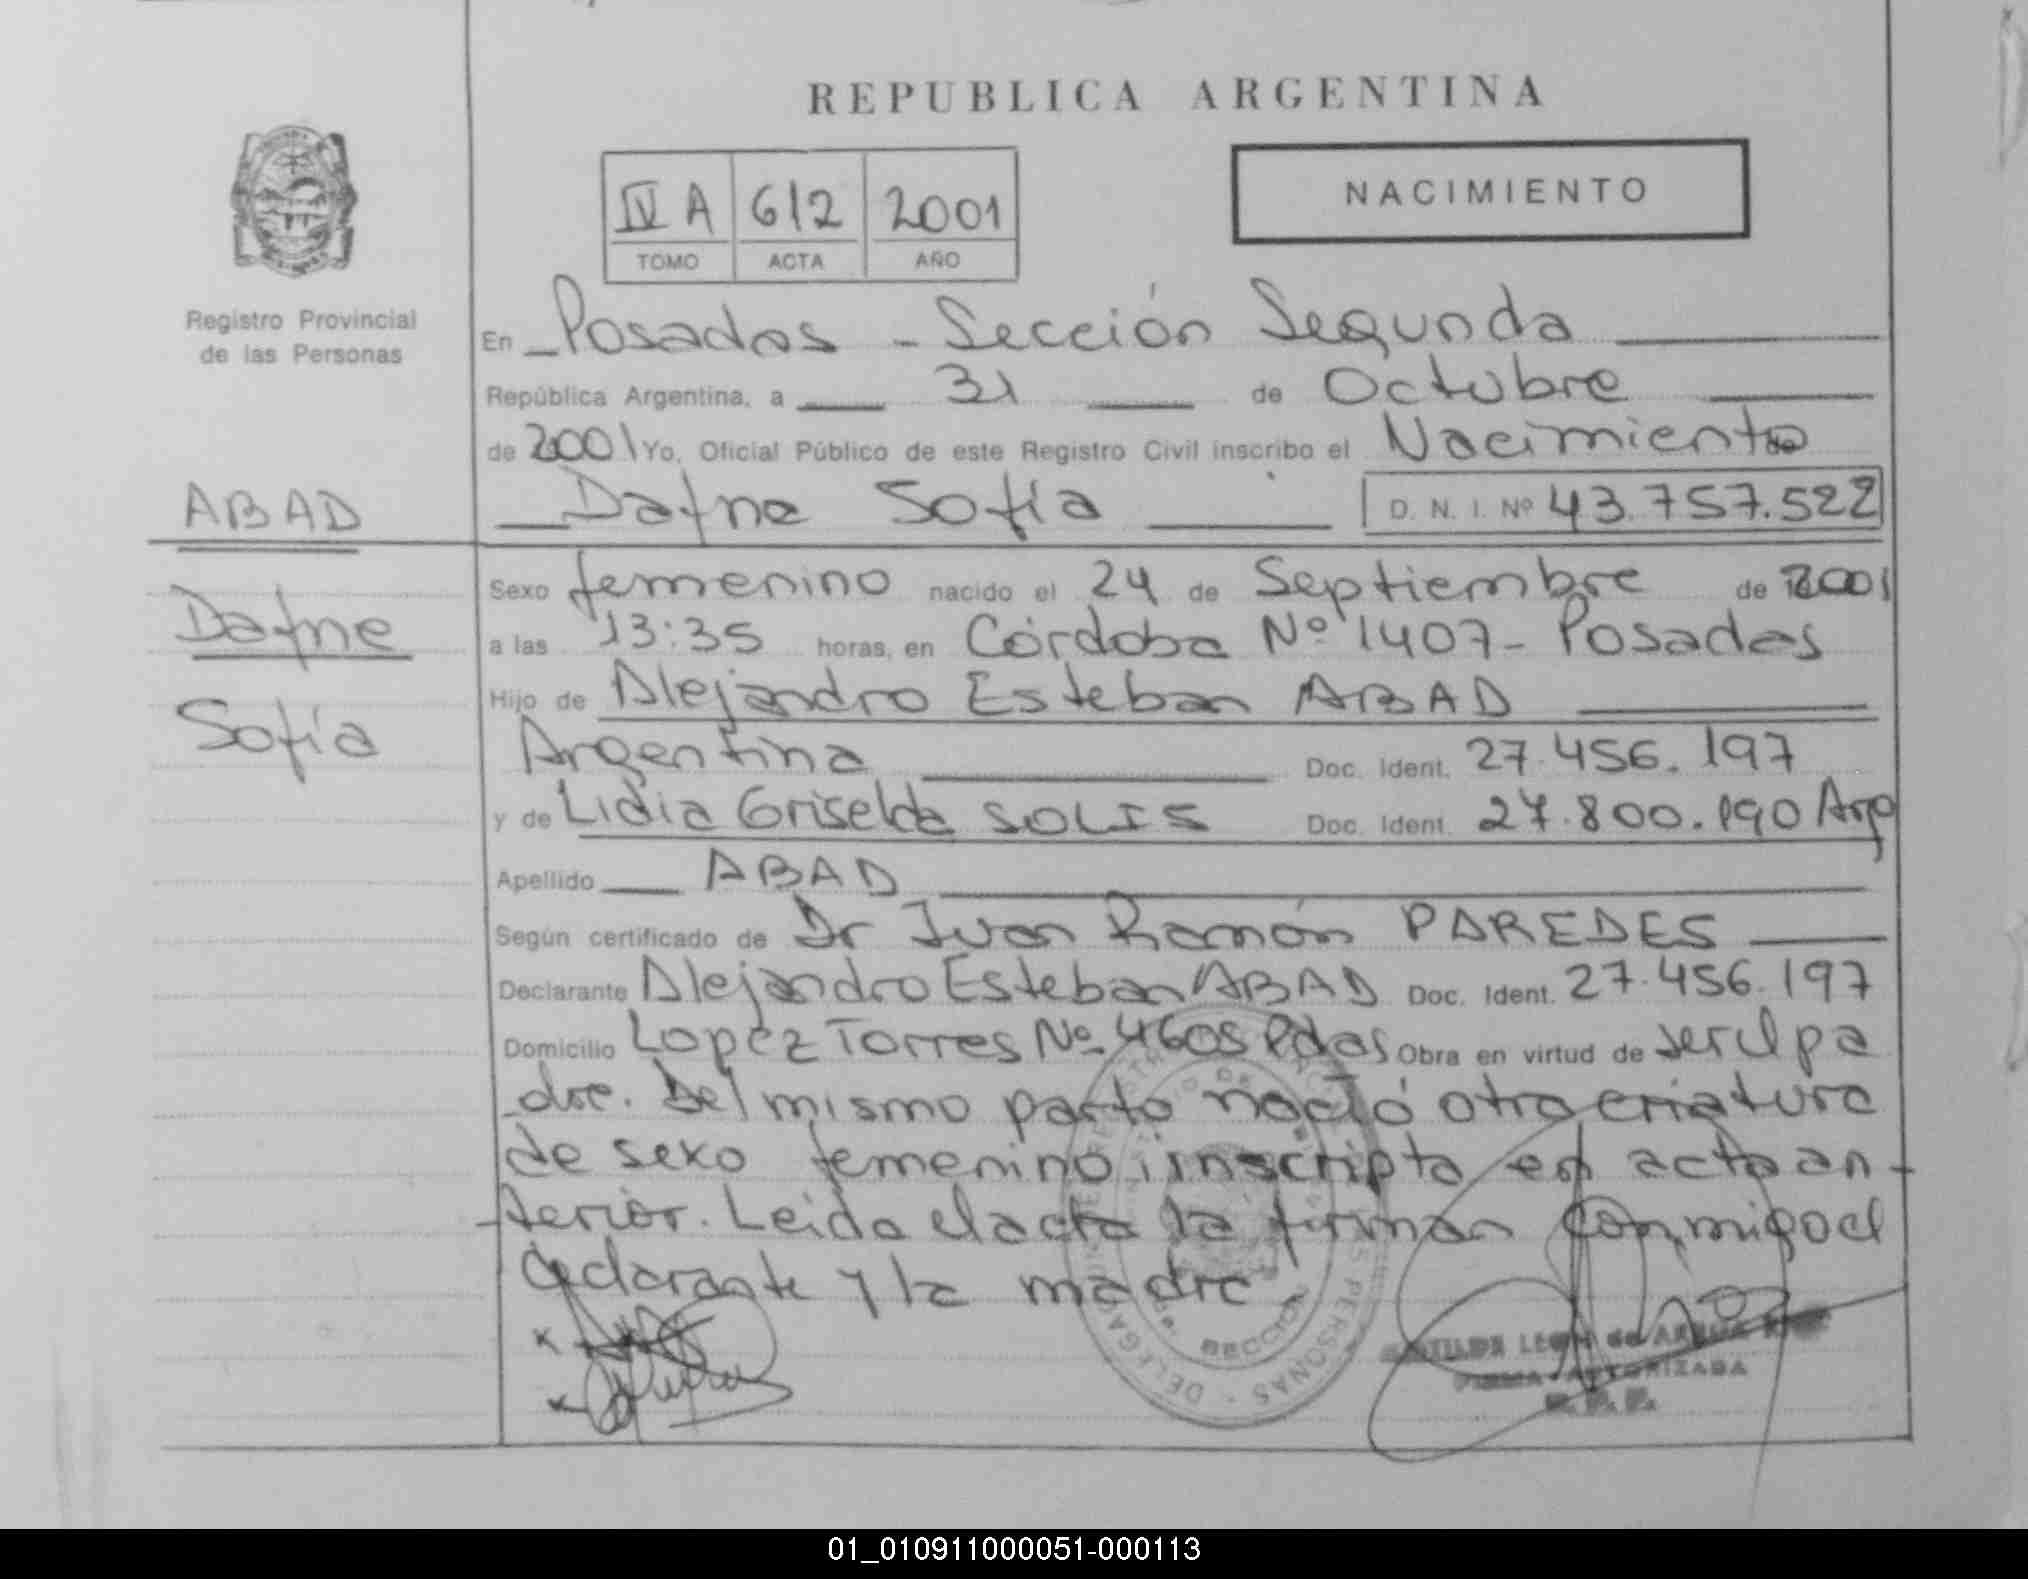 REPUBLICA ARGENTINA
NACIMIENTO
IV A 612 2001
TOMO ACTA AÑO
Registro Provincial
de las Personas
En Posadas - Sección Segunda
República Argentina, a 31 de Octubre
de 2001 Yo, Oficial Público de este Registro Civil inscribo el Nacimiento de
Dafne Sofía D. N. I. Nº 43.757.522
ABAD
Dafne
Sofía
Sexo femenino nacido el 24 de Septiembre de 2001
a las 13:35 horas, en Córdoba Nº 1407 - Posadas
Hijo de Alejandro Esteban ABAD
Argentina Doc. Ident. 27.456.197
y de Lidia Griselda SOLIS Doc. Ident. 27.800.190 Arg
Apellido ABAD
Según certificado de Dr Juan Ramón PAREDES
Declarante Alejandro Esteban ABAD Doc. Ident. 27.456.197
Domicilio Lopez Torres Nº 4608 Pdas Obra en virtud de ser el pa
dre. Del mismo parto nació otra criatura
de sexo femenino, inscripta en acta an-
terior. Leída el acta la firman conmigo el
declarante y la madre.
SECCION
FIRMA AUTORIZADA
01_010911000051-000113